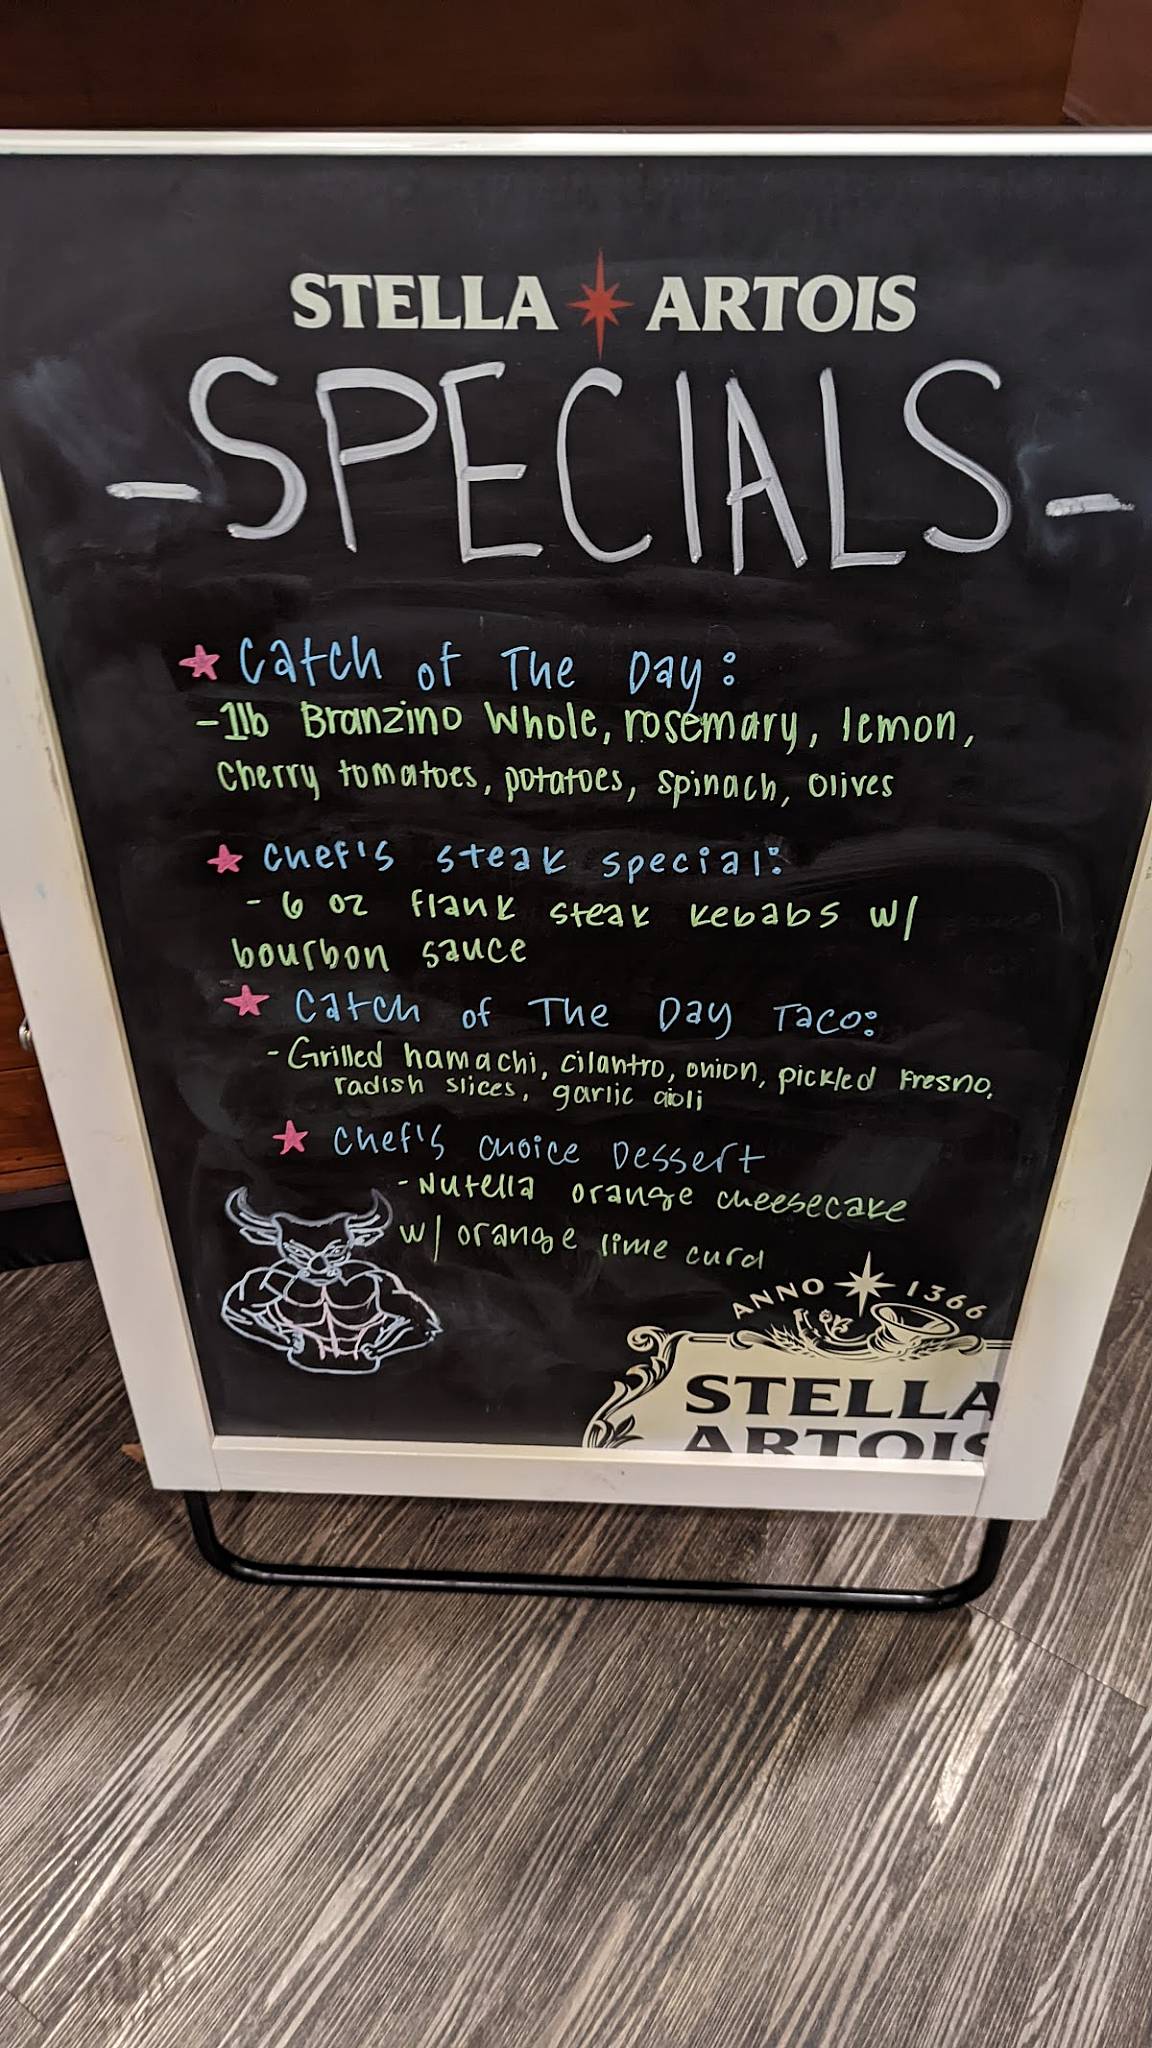 STELLA ARTOIS
-SPECIALS-
Catch of The Day:
-1lb Branzino Whole, rosemary, lemon,
Cherry tomatoes, potatoes, spinach, olives
Chef's steak special:
- 6 oz flank steak kebabs w/
bourbon sauce
Catch of The Day Taco:
- Grilled hamachi, cilantro, onion, pickled Fresno,
radish slices, garlic aioli
Chef's Choice Dessert
- Nutella orange cheesecake
w/ orange lime curd
ANNO 1366
STELLA
ARTOIS